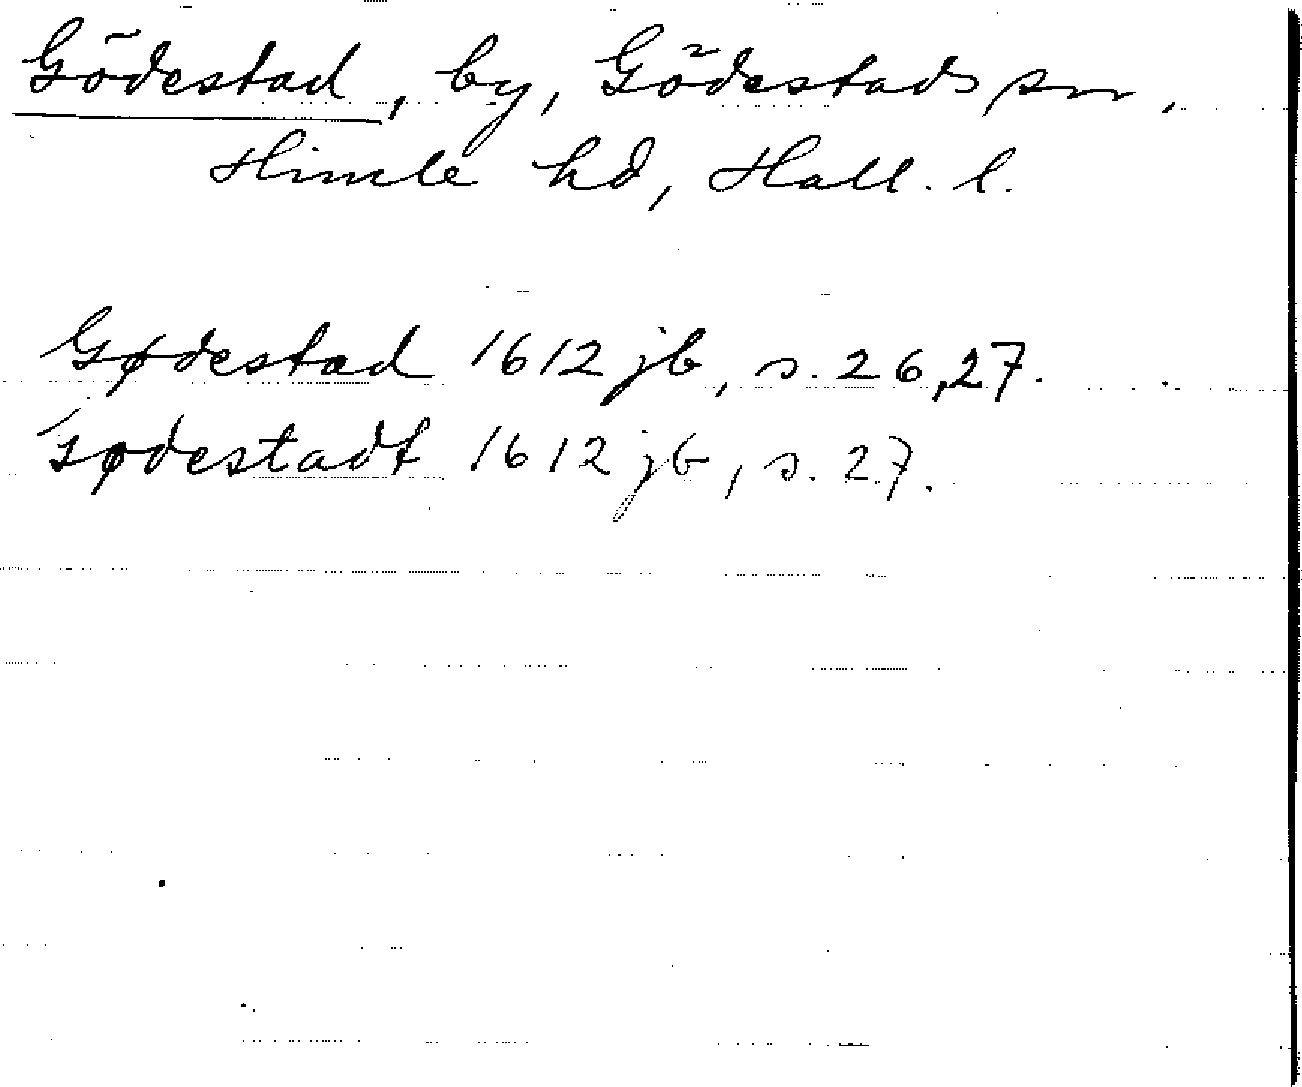 Gödestad, by, Gödestads sn,
Himle hd, Hall. l.
Gødestad 1612 jb, s. 26,27.
Gødestadt 1612 jb, s. 27.